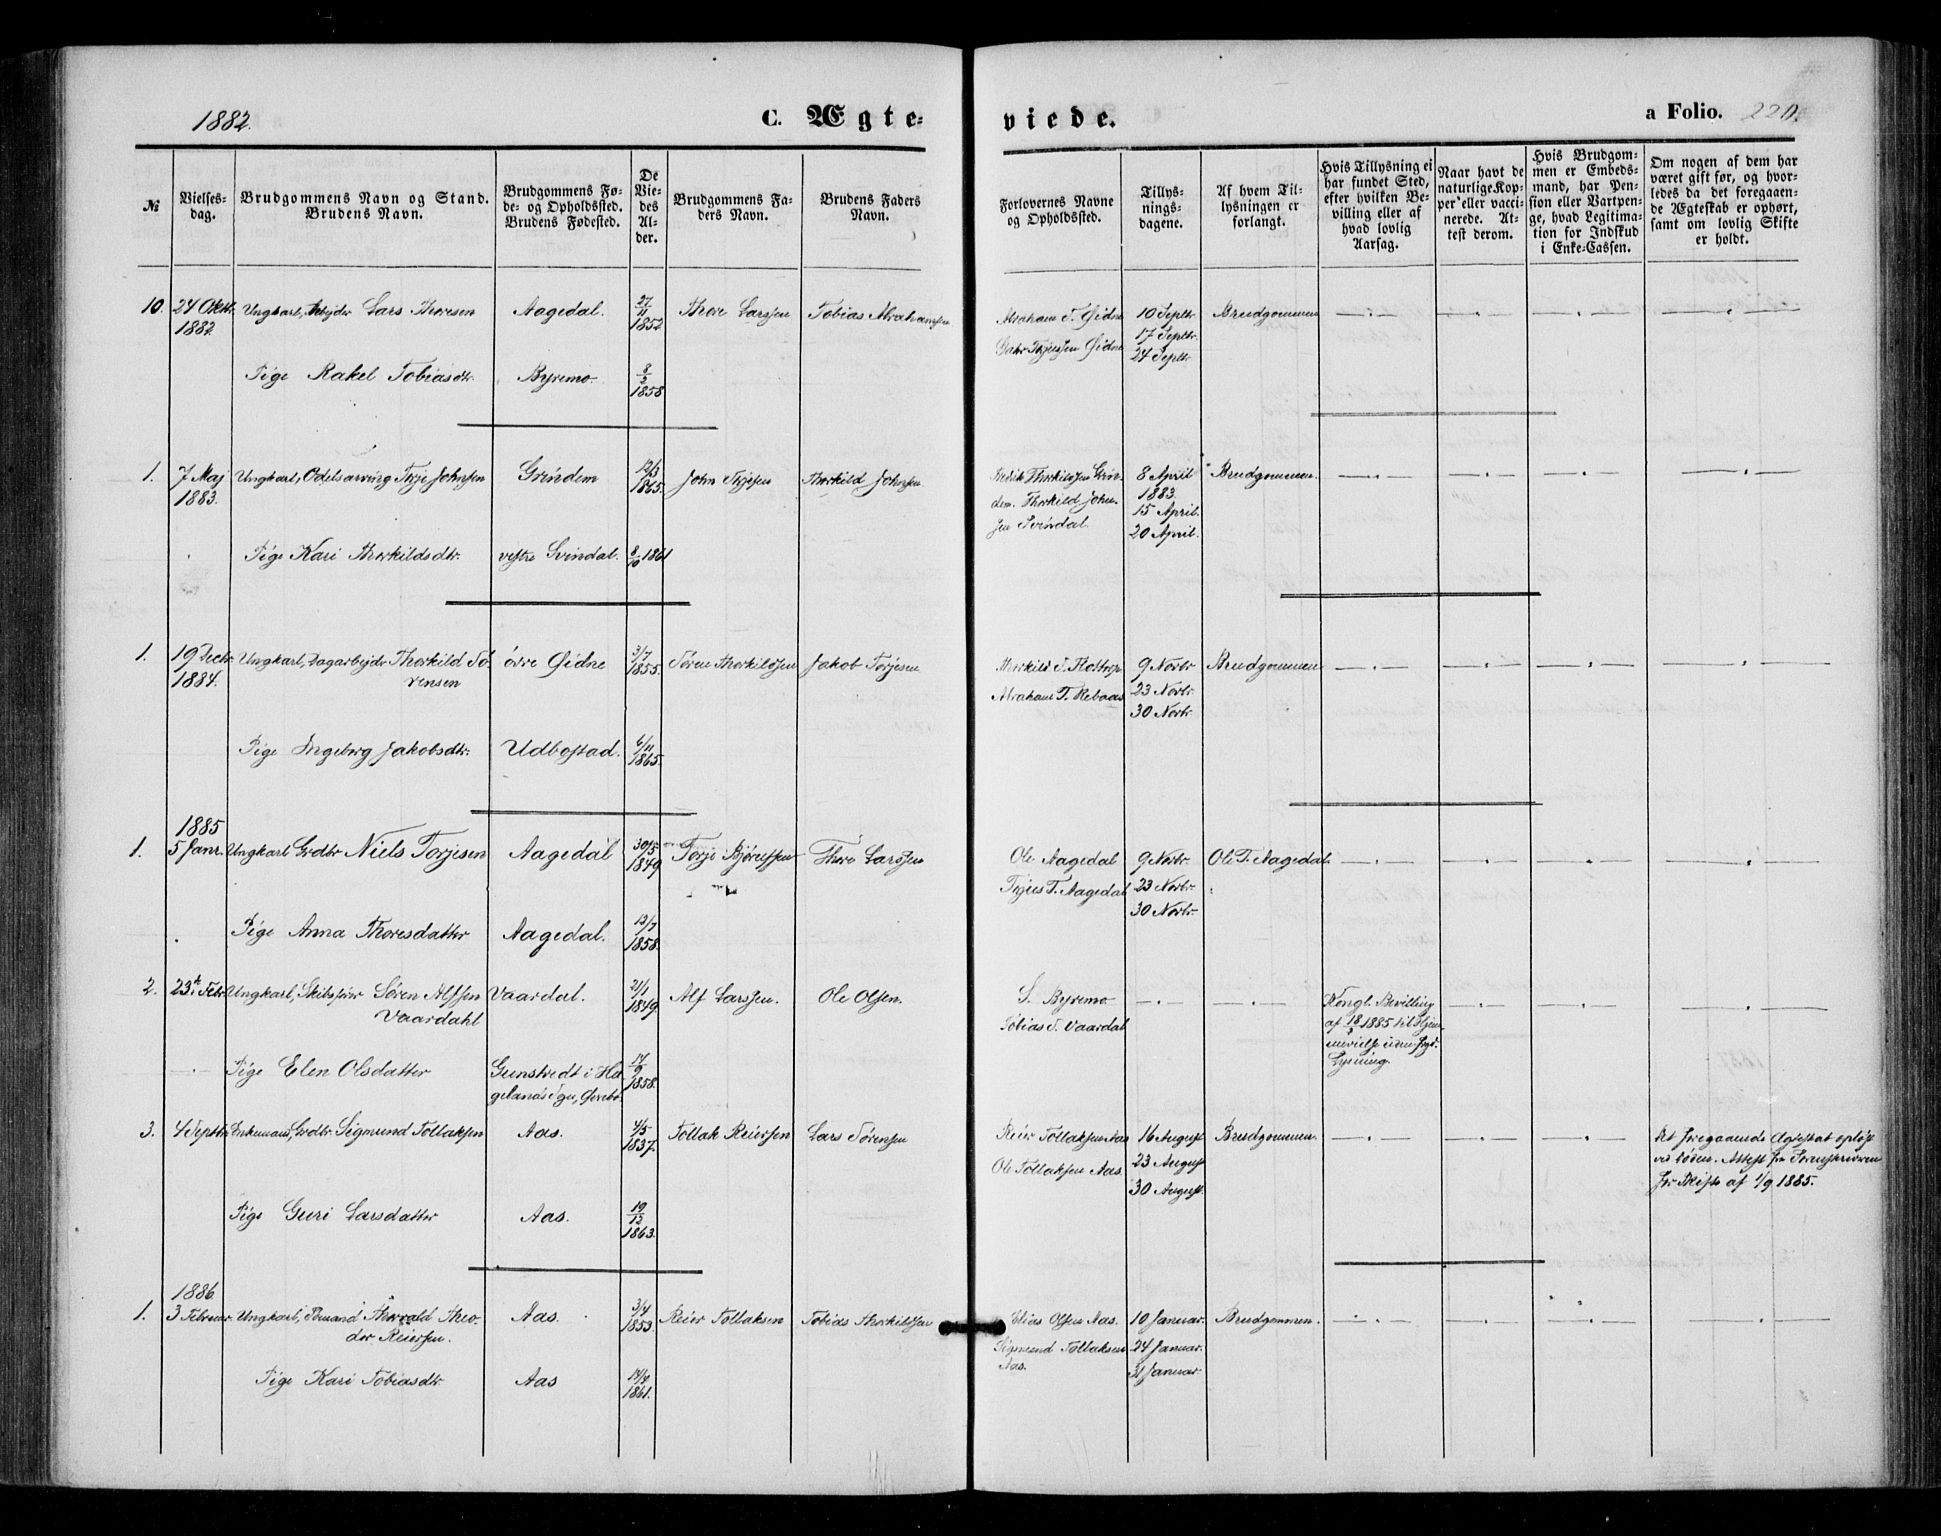 1882.
C. Ægte-
viede.
a Folio. 220.
№
Vielses-
dag.
Brudgommens Navn og Stand.
Brudens Navn.
Brudgommens Fø-
de- og Opholdssted.
Brudens Fødested.
De
Vie-
des
Al-
der.
Brudgommens Fa-
ders Navn.
Brudens Faders
Navn.
Forlovernes Navne
og Opholdssted.
Tillys-
nings-
dagene.
Af hvem Til-
lysningen er
forlangt.
Hvis Tillysning ei
har fundet Sted,
efter hvilken Be-
villing eller af
hvad lovlig
Aarsag.
Naar havt de
naturlige Kop-
per eller vacci-
nerede. At-
test derom.
Hvis Brudgom-
men er Embeds-
mand, har Pen-
sion eller Vartpen-
ge, hvad Legitima-
tion for Indskud
i Enke-Cassen.
Om nogen af dem har
været gift før, og hvor-
ledes da det foregaaen-
de Ægteskab er ophørt,
samt om lovlig Skifte
er holdt.
10. 24 Oktbr. Ungkarl, Arbejder Lars Thoresen Aagedal. 27/11 Thore Larssen Tobias Abrahamsen Abraham T. Øidne 10 Septbr. Brudgommen
1882 1852 17 Septbr.
Øidne 24 Septbr.
Pige Rakel Tobiasdtr. Byremo. 8/2
1858
1. 7 Maj Ungkarl, Odelsarving Terje Johnsen Grindem 12/3 John Terjesen Thorkild Johnsen Fredrik Thorkildsen Grin- 8 April Brudgommen.
1883. 1865. dem. Thorkild John- 1883.
sen Svindal. 15 April.
20 April.
Pige Kari Thorkildsdtr. vestre Svindal. 8/10 1861
1. 19 Decbr. Ungkarl, Dagarbejder Thorkild Sö- övre Øidne 3/7 Sören Thorkildsen Jakob Torjesen Thorkild S. 9 Novbr. Brudgommen
1884. rensen 1855. Abraham T. Rebaas 23 Novbr.
30 Novbr.
Pige Ingeborg Jakobsdtr. Udbostad. 6/11
1865.
1885
1. 5 Janr. Ungkarl Grdbr Niels Torjesen Aagedal 30/5 Torje Bjørulfsen Thore Larssen Ole Aagedal 9 Novbr. Ole T. Aagedal
1849 Terjus T. Aagedal 23 Novbr.
30 Novbr.
Pige Anna Thoresdatter Aagedal. 12/7
1858.
2. 23de Febr Ungkarl, Skibsfører Søren Alfsen Vaardal. 21/1 Alf Larssen. Ole Olsen. S. Byremo Kongl. Bevilling
Vaardahl 1849. Tobias T. Vaardal af 18/2 1885 til Hjem-
mevielse uden
Lysning.
Pige Elen Olsdatter Gunstvedt i Hæ- 17/9
gelands Sgn, Øvrebø. 1858.
3. 4 Septbr. Enkemand, Grdbr. Sigmund Tollaksen Aas. 4/5 Tollak Reiersen Lars Sørensen Reier Tollaksen Aas 16 August Brudgommen. Det foregaaende Ægteskab opløst
1837. Ole Tollaksen Aas. 23 August ved Døden. Attest fra Sorenskriveren
30 August. for Skifte af 1/9 1885.
Pige Guri Larsdatter Aas. 19/12
1863.
1886.
1. 3 Februar Ungkarl, Sømand Thorvald Theo- Aas. 3/4 Reier Tollaksen Tobias Thorkildsen Elias Olsen Aas. 10 Januar. Brudgommen.
dor Reiersen. 1853. Sigmund Tollaksen 24 Januar.
Aas. 31 Januar.
Pige Kari Tobiasdtr. Aas 14/4
1861.